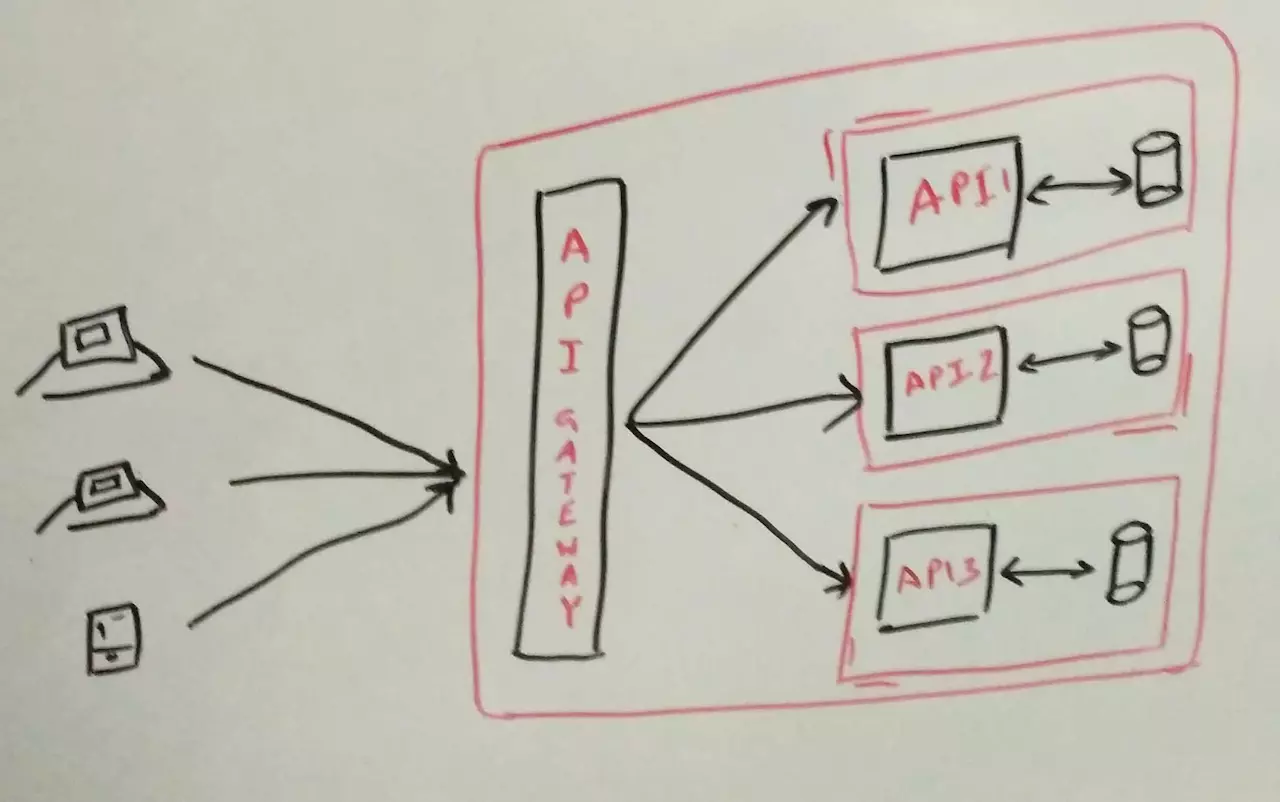 API GATEWAY
API1
API2
API3